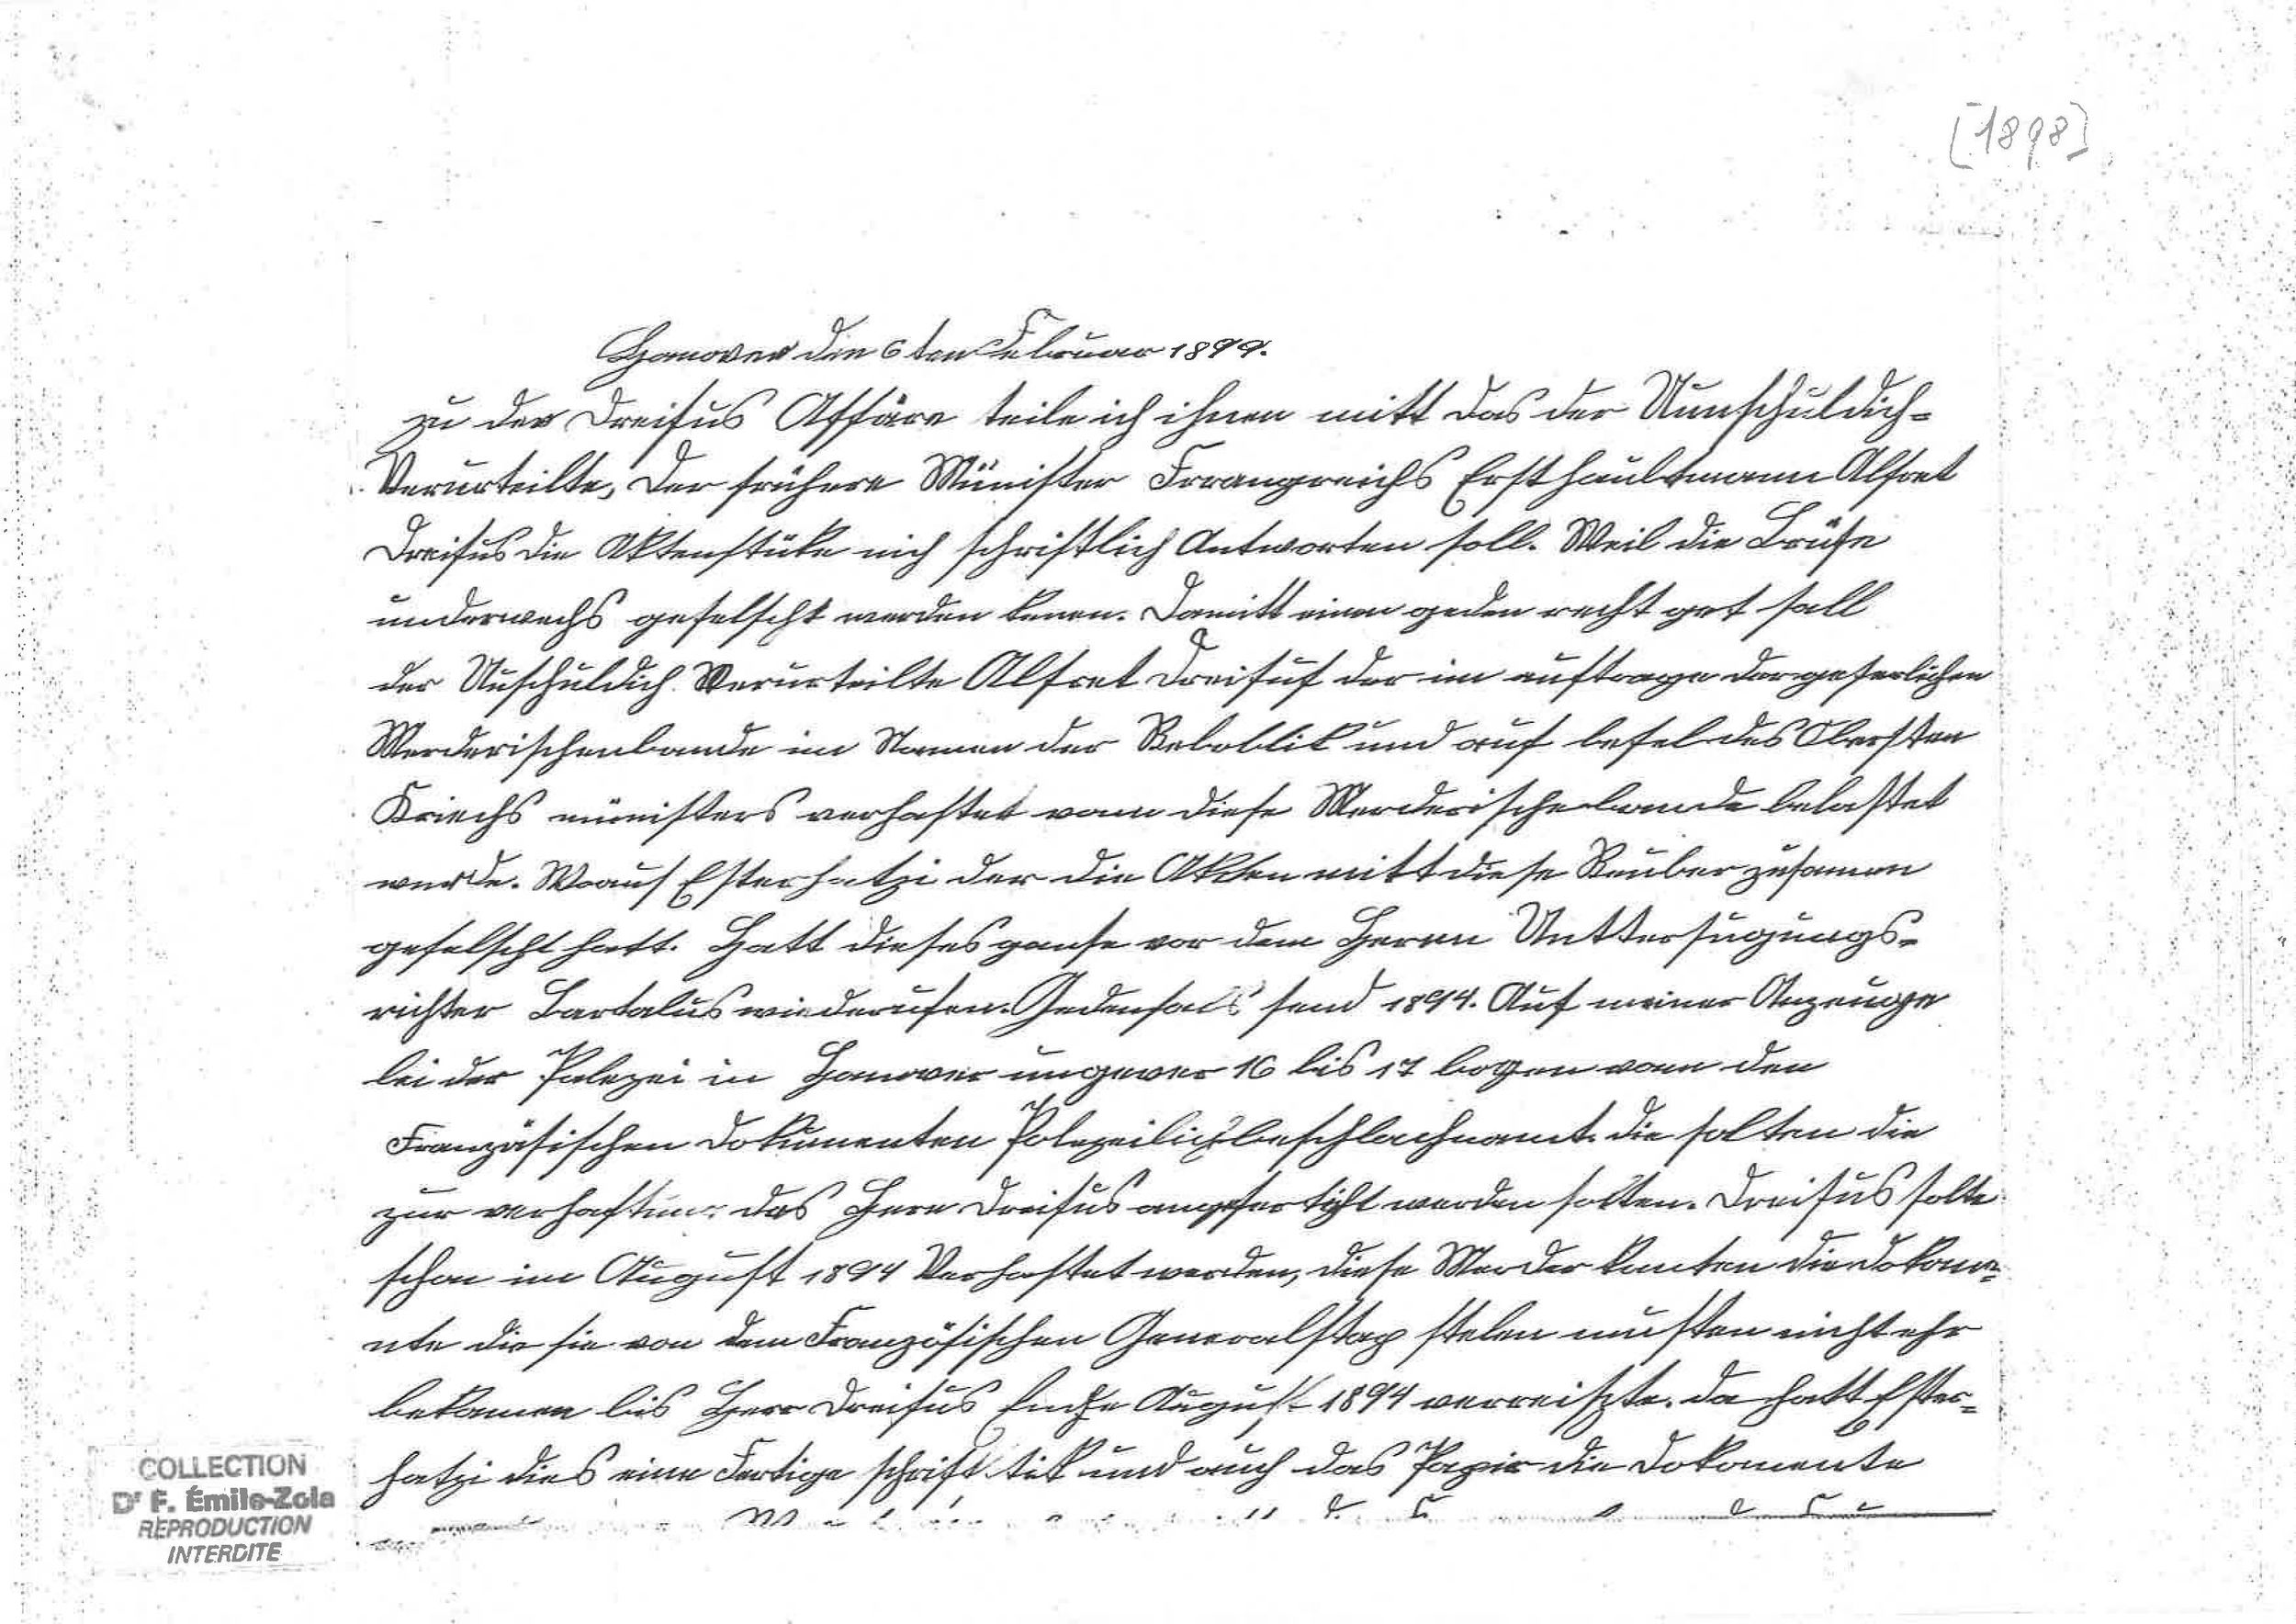 [1898]
Hanover den 6ten Februar 1899.
zu der Dreifus Affäre teile ich ihnen mitt das der Uunschuldich-
Verurteilte, der frühere Münister Frrangreichs Ersthaubtmann Alfret
Dreifus die Aktenstüke nich schriftlich Antworten soll. Weil die Brüfe
underwechs gefelscht werden kenen. Damitt einen geden recht get sall
der Unschuldich Verurteilte Alfret Dreifuf der im auftrage der geferlichen
Merderischenbande im Namen der Reboblik und auf befel des Obersten
Kriechs münisters verhaftet vonn diese Merderischebande belastet
wurde. Woauf Esterhatzi der die Akten mitt diese Reuber zusamen
gefelscht hatt. Hatt dieses ganse vor dem Herrn Unttersugungs-
richter Bartalus wiederufen. Gedenfals send 1894. Auf meiner Anzeuge
bei der Polezei in Hanover ungever 16 bis 17 bogen vonn den
Französischen Dokumenten Polezeilich beschlachnamt. die solten die
zur verhaftung des Herrn Dreifus angefertigt werden solten. Dreifus solte
schon im August 1894 Verhaftet werden, diese Merder konten die Dokome-
nte die sie von dem Französischen Generalstap stelen musten nicht ehr
bekomen bis Herr Dreifus Ende August 1894 verreiszte. da hatt Ester-
hatzi dies eine Fertige schrift und auch das Papir die Dokomente
COLLECTION
Dr F. Émile-Zola
REPRODUCTION
INTERDITE